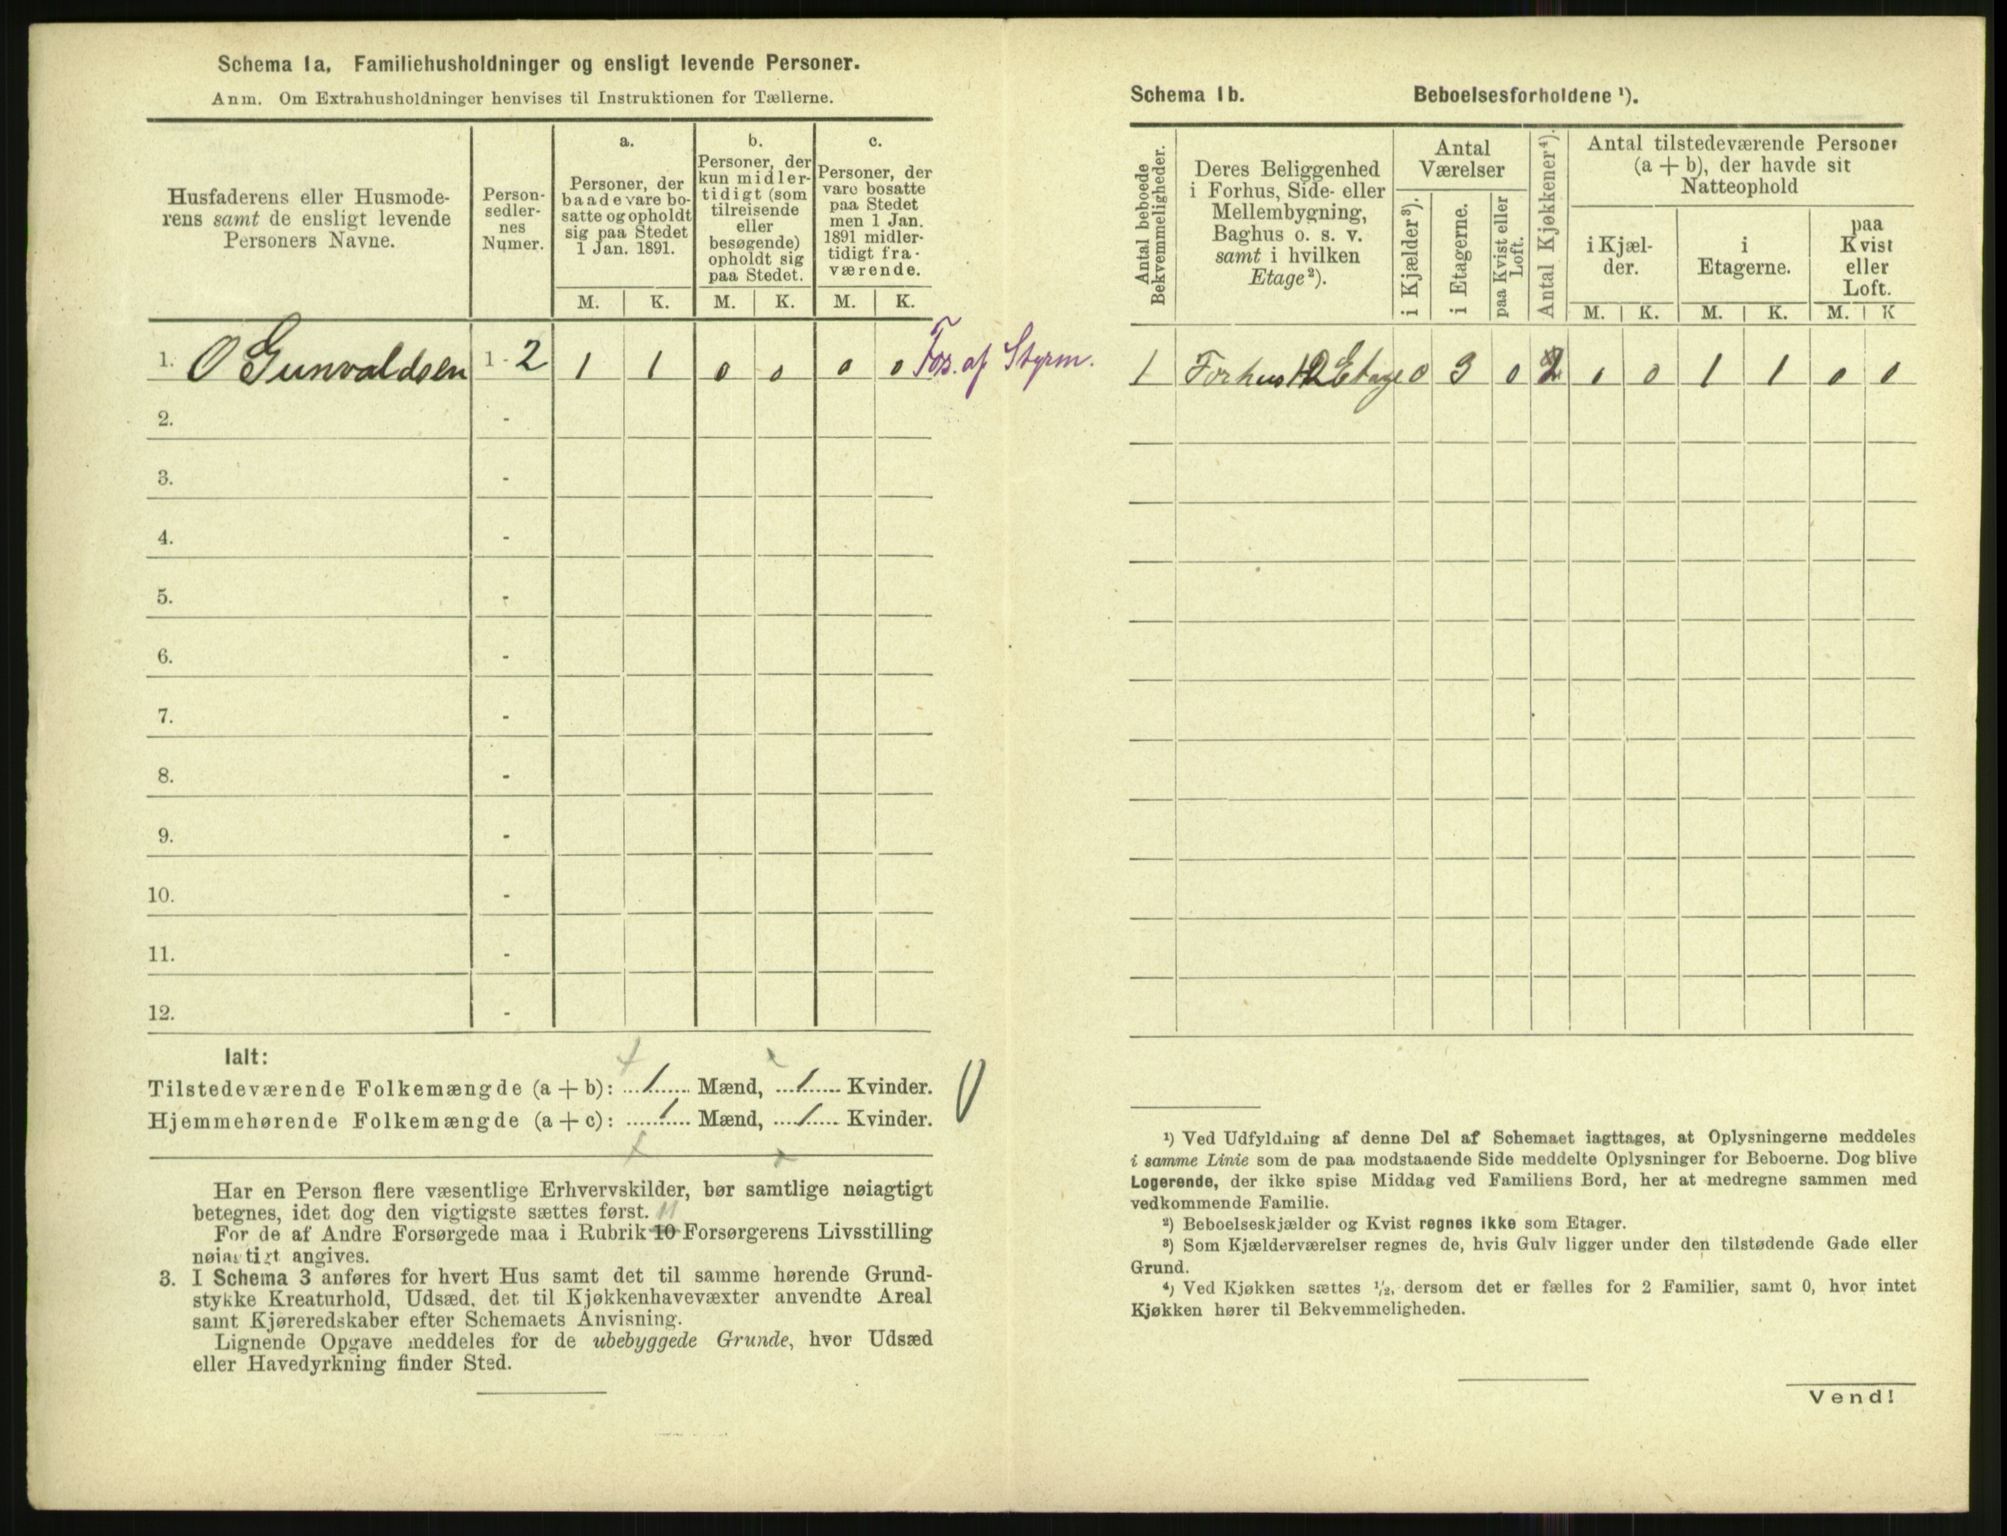 Schema 1a. Familiehusholdninger og ensligt levende Personer.
Anm. Om Extrahusholdninger henvises til Instruktionen for Tællerne.
Husfaderens eller Husmoderens samt de ensligt levende Personers Navne.
Person-
sedler-
nes
Numer.
a.
Personer, der
baade vare bo-
satte og opholdt
sig paa Stedet
1 Jan. 1891.
b.
Personer, der
kun midler-
tidigt (som
tilreisende
eller
besøgende)
opholdt sig
paa Stedet.
c.
Personer, der
vare bosatte
paa Stedet
men 1 Jan.
1891 midler-
tidigt fra-
værende.
M. K. M. K. M. K.
1. O Gunvaldsen 1 - 2 1 1 0 0 0 0 Fos. af Styrm.
2. -
3. -
4. -
5. -
6. -
7. -
8. -
9. -
10. -
11. -
12. -
Ialt:
Tilstedeværende Folkemængde (a + b): 1 Mænd, 1 Kvinder.
Hjemmehørende Folkemængde (a + c): 1 Mænd, 1 Kvinder.
Har en Person flere væsentlige Erhvervskilder, bør samtlige nøiagtigt
betegnes, idet dog den vigtigste sættes først. 11
For de af Andre Forsørgede maa i Rubrik 10 Forsørgerens Livsstilling
nøiagtigt angives.
3. I Schema 3 anføres for hvert Hus samt det til samme hørende Grund-
stykke Kreaturhold, Udsæd, det til Kjøkkenhavevæxter anvendte Areal
samt Kjøreredskaber efter Schemaets Anvisning.
Lignende Opgave meddeles for de ubebyggede Grunde, hvor Udsæd
eller Havedyrkning finder Sted.
Schema 1b. Beboelsesforholdene ¹).
Antal beboede
Bekvemmeligheder.
Deres Beliggenhed
i Forhus, Side- eller
Mellembygning,
Baghus o. s. v.
samt i hvilken
Etage²).
Antal
Værelser
i Kjælder³).
i Etagerne.
paa Kvist eller
Loft.
Antal Kjøkkener⁴).
Antal tilstedeværende Personer
(a + b), der havde sit
Natteophold
i Kjæl-
der.
i
Etagerne.
paa
Kvist
eller
Loft.
M. K. M. K. M. K
1 Forhus Etage 0 3 0 0 0 1 1 0 0
¹) Ved Udfyldning af denne Del af Schemaet iagttages, at Oplysningerne meddeles
i samme Linie som de paa modstaaende Side meddelte Oplysninger for Beboerne. Dog blive
Logerende, der ikke spise Middag ved Familiens Bord, her at medregne sammen med
vedkommende Familie.
²) Beboelseskjælder og Kvist regnes ikke som Etager.
³) Som Kjælderværelser regnes de, hvis Gulv ligger under den tilstødende Gade eller
Grund.
⁴) Ved Kjøkken sættes ½, dersom det er fælles for 2 Familier, samt 0, hvor intet
Kjøkken hører til Bekvemmeligheden.
Vend!